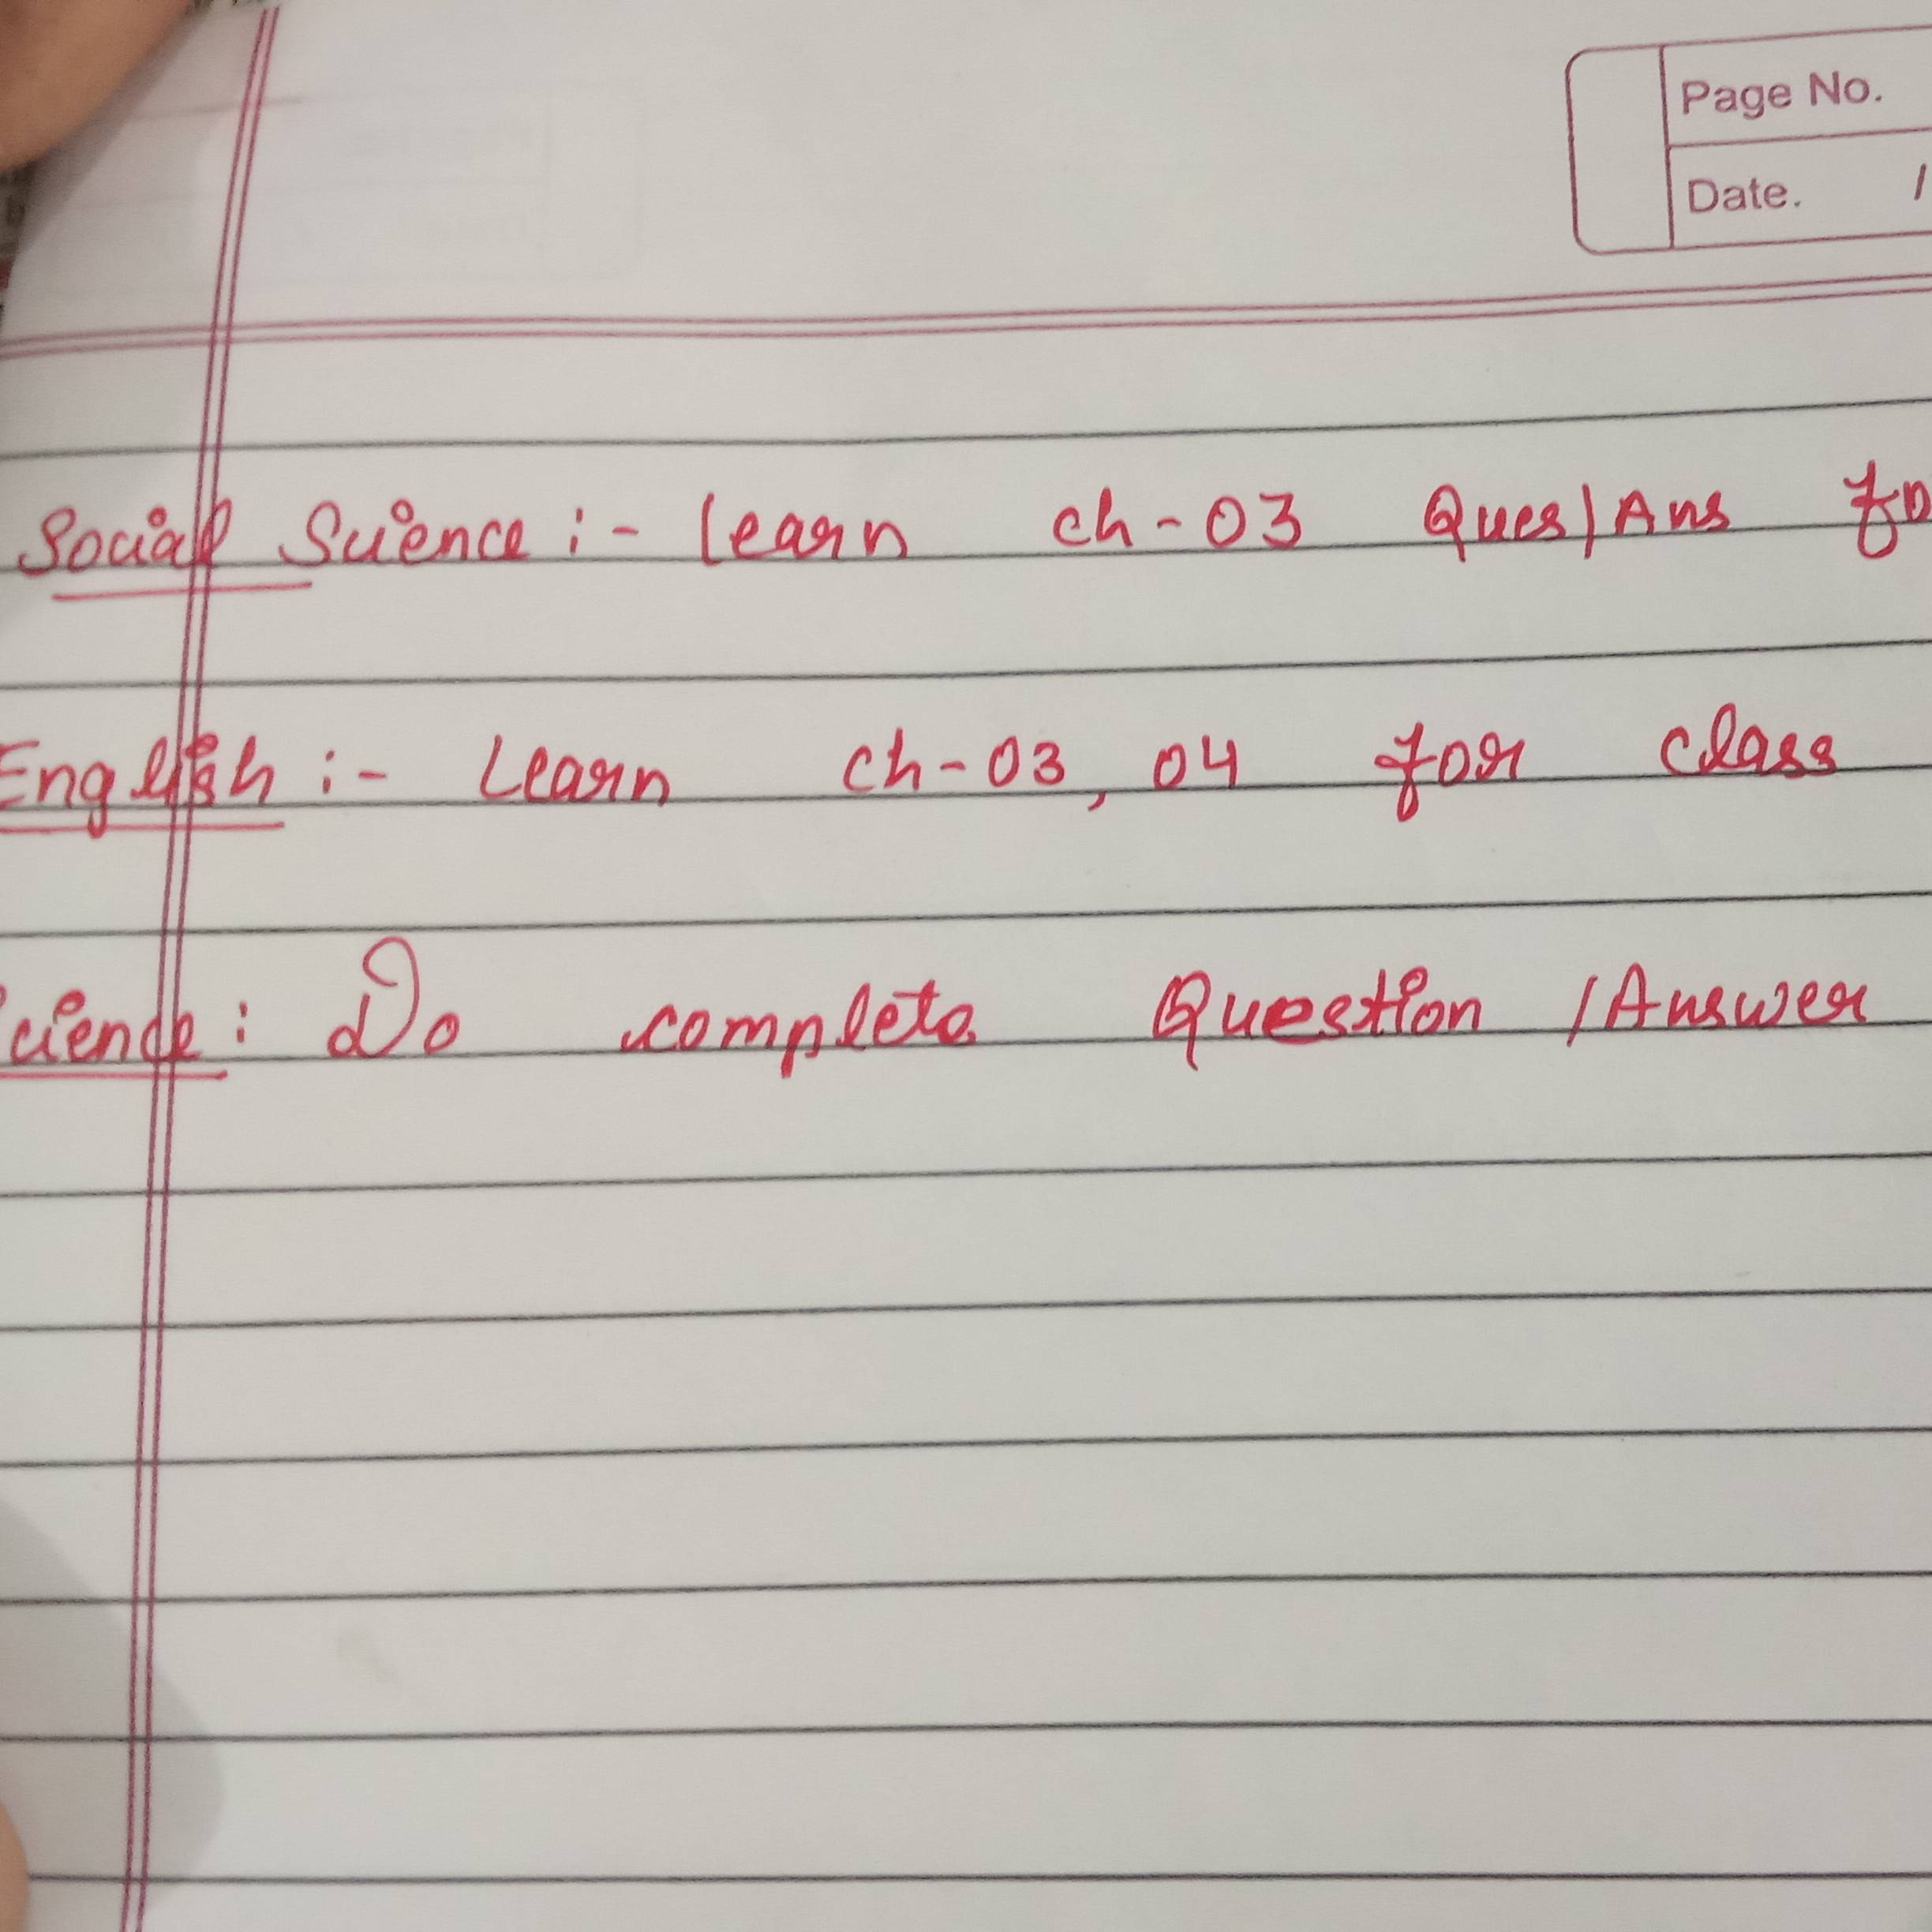 Page No.
Date. /
Social Science :- Learn ch-03 Ques/Ans fo
English :- Learn ch-03, 04 for class
cience : Do complete Question /Answer